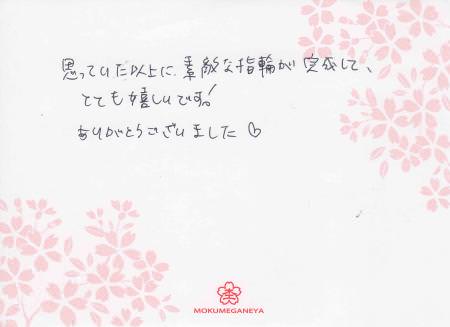 思っていた以上に、素敵な指輪が完成して、
とても嬉しいです!
ありがとうございました♡
MOKUMEGANEYA